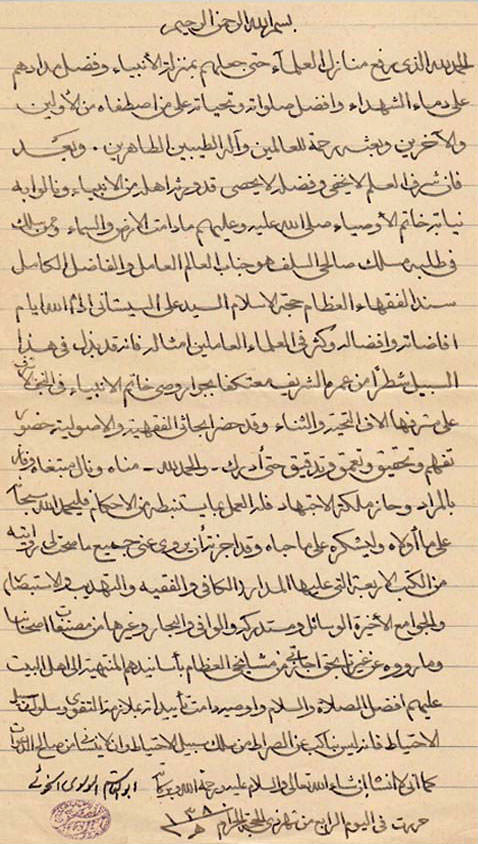 بسم الله الرحمن الرحيم
الحمد لله الذي رفع منازل العلماء حتى جعلهم بمنزلة الأنبياء وفضل مدادهم
على دماء الشهداء وافضل صلواته وتحياته على من اصطفاه من الأولين
والآخرين وبعثه رحمة للعالمين وآله الطيبين الطاهرين. وبعد
فان شرف العلم لا يخفى وفضله لا يحصى قد ورثه اهله من الانبياء ونالوا به
نيابة خاتم الأوصياء صلى الله عليه وعليهم ما دامت الارض والسماء وممن سلك
في طلبه مسلك صالحي السلف هو جناب العالم العامل والفاضل الكامل
سند الفقهاء العظام حجة الاسلام السيد علي السيستاني ادام الله ايام
افاضاته وافضاله وكثر في العلماء العاملين امثاله فانه قد بذل في هذا
السبيل شطراً من عمره الشريف معتكفا بجوار وصي خاتم الانبياء في النجف الاشرف
على مشرفها آلاف التحية والثناء وقد حضر ابحاثي الفقهية والاصولية حضور
تفهم وتحقيق وتعمق وتدقيق حتى أدرك - والحمد لله - مناه ونال مبتغاه وفاز
بالمراد وحاز ملكة الاجتهاد فله العمل بما يستنبطه من الاحكام فليحمد الله سبحانه
على ما أولاه وليشكره على ما حباه وقد اجزته أن يروي عني جميع ما صحت لي روايته
من الكتب الاربعة التي عليها المدار (الكافي والفقيه والتهذيب والاستبصار)
والجوامع الأخيرة الوسائل ومستدركه والوافي والبحار وغيرها من مصنفات اصحابنا
وما رووه عن غيرنا بحق اجازتي من مشايخي العظام بأسانيدهم المنتهية الى اهل البيت
عليهم افضل الصلاة والسلام واوصيه دامت تأييداته بملازمة التقوى وسلوك سبيل
الاحتياط فانه ليس بناكب عن الصراط من سلك سبيل الاحتياط وان لا ينساني من صالح الدعوات
كما أني لا انساه إنشاء الله تعالى والسلام عليه ورحمة الله وبركاته ابو القاسم الموسوي الخوئي
حررت في اليوم الرابع من شهر ذي الحجة الحرام ١٣٨٠ هـ